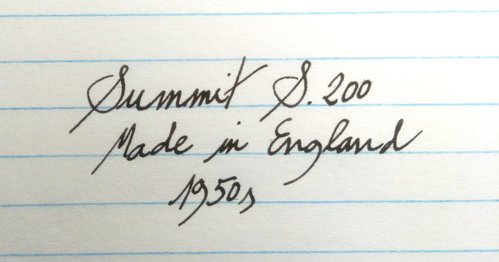 Summit S.200
Made in England
1950s